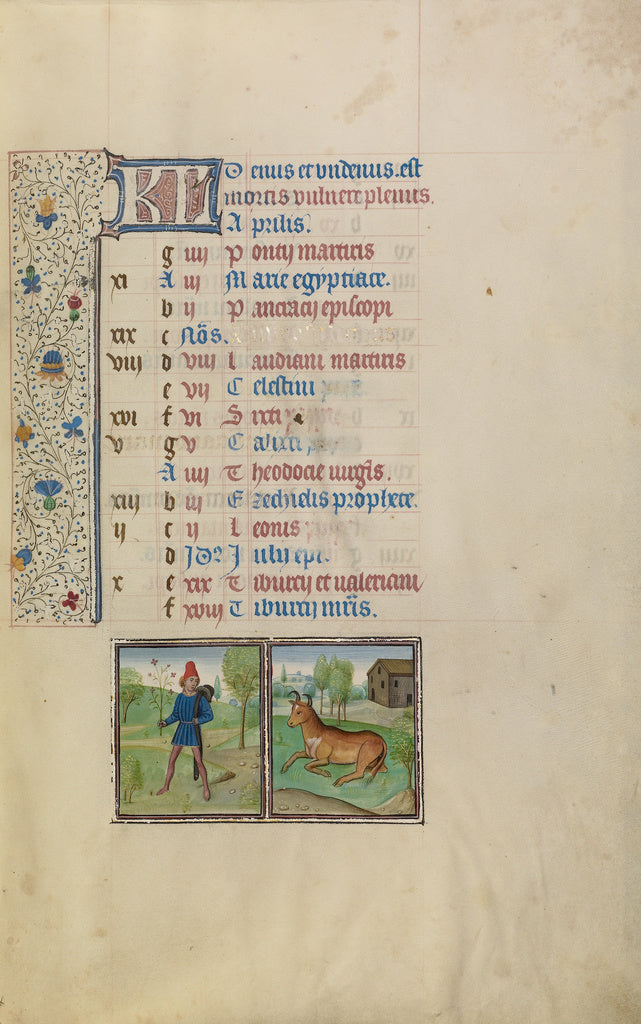 KL Denus et undenus est
mortis vulnere plenus.
Aprilis.
g iiii Pontii martiris
xi A iii Marie egyptiace.
b ii Pancracii episcopi
xix c Nōs.
viii d viii Claudiani martiris
e vii Celestini
xvi f vi Sixti
v g v Calixti
A iiii Theodocie uirgīs.
xiii b iii Ezechielis prophete.
ii c ii Leonis
d Julii epi.
x e xix Tiburcii et ualeriani
f xviii Tiburcii mr̄is.